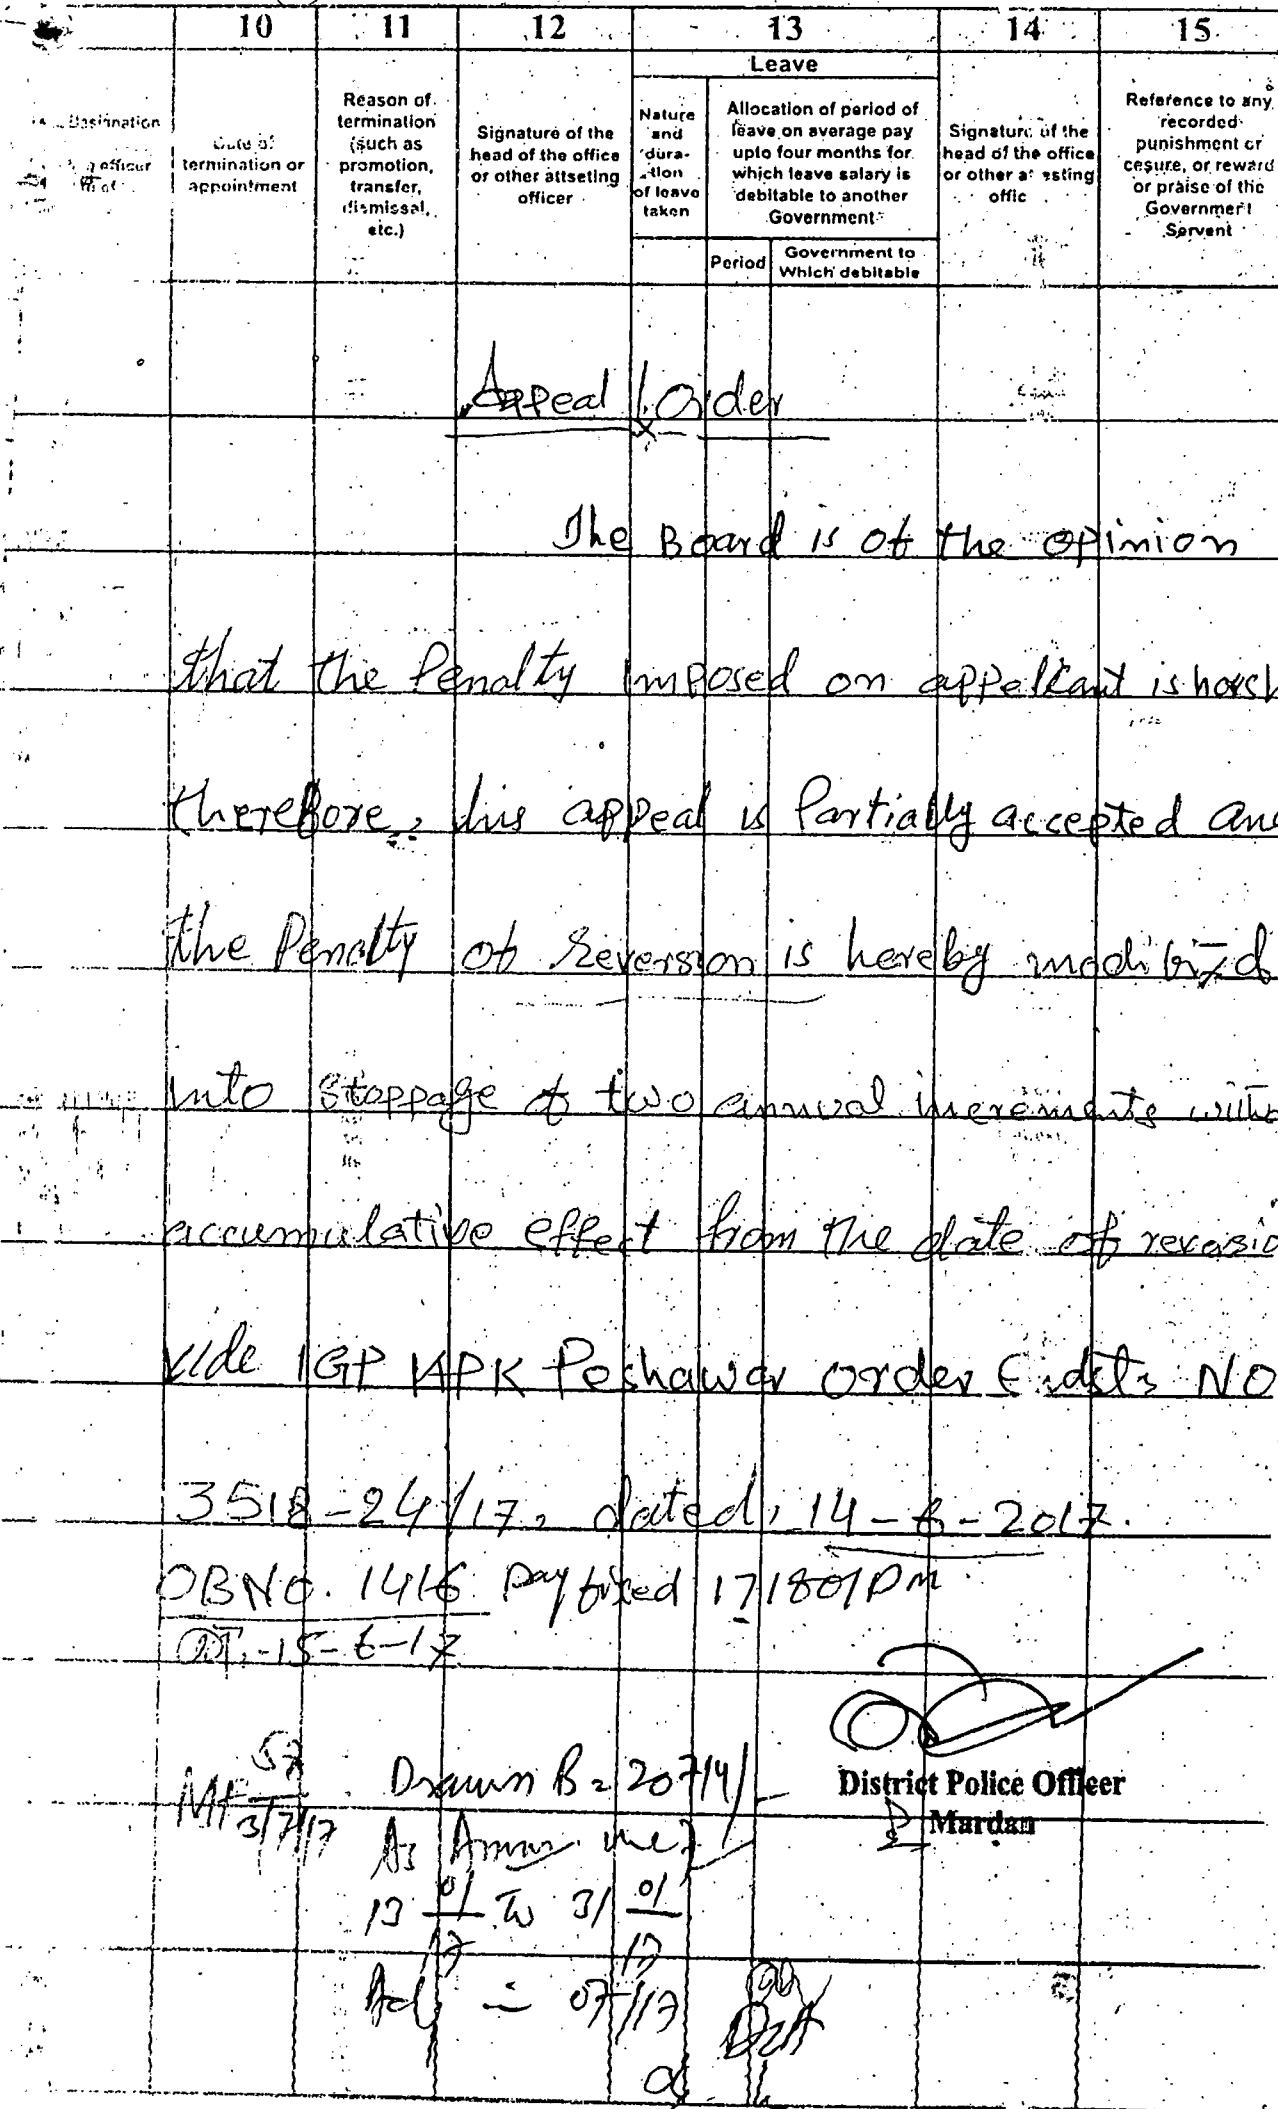 10 11 12 13 14 15
Leave
Designation
officer
Date of termination or appointment
Reason of termination (such as promotion, transfer, dismissal, etc.)
Signature of the head of the office or other attseting officer
Nature and dura-tion of leave taken
Allocation of period of leave on average pay upto four months for which leave salary is debitable to another Government
Period
Government to Which debitable
Signature of the head of the office or other a esting offic
Reference to any recorded punishment or cesure, or reward or praise of the Government Servent
Appeal Order
The Board is of the opinion
that the Penalty imposed on appellant is harsh
therefore, his appeal is Partially accepted and
the Penalty of reversion is hereby modified
into stoppage of two annual increments with
accumulative effect from the date of reversio
vide IGP KPK Peshawar order Endst: NO
3518-24/17, dated, 14-6-2017.
OB NO. 1416 Pay fixed 17180/PM
DT.-15-6-17
3/7/17 Drawn 20714/
District Police Officer
Mardan
As
13 01/17 To 31 01/17
Adj = 07/17